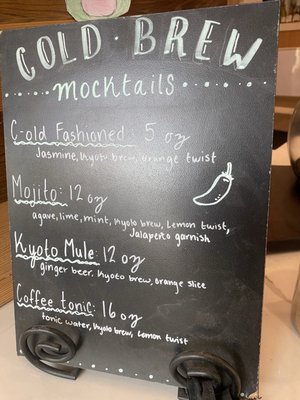 COLD · BREW
mocktails
C-old Fashioned: 5 oz
Jasmine, Kyoto brew, orange twist
Mojito: 12 oz
agave, lime, mint, Kyoto brew, Lemon twist,
Jalapeño garnish
Kyoto Mule: 12 oz
ginger beer, Kyoto brew, orange slice
Coffee tonic: 16 oz
tonic water, Kyoto brew, Lemon twist